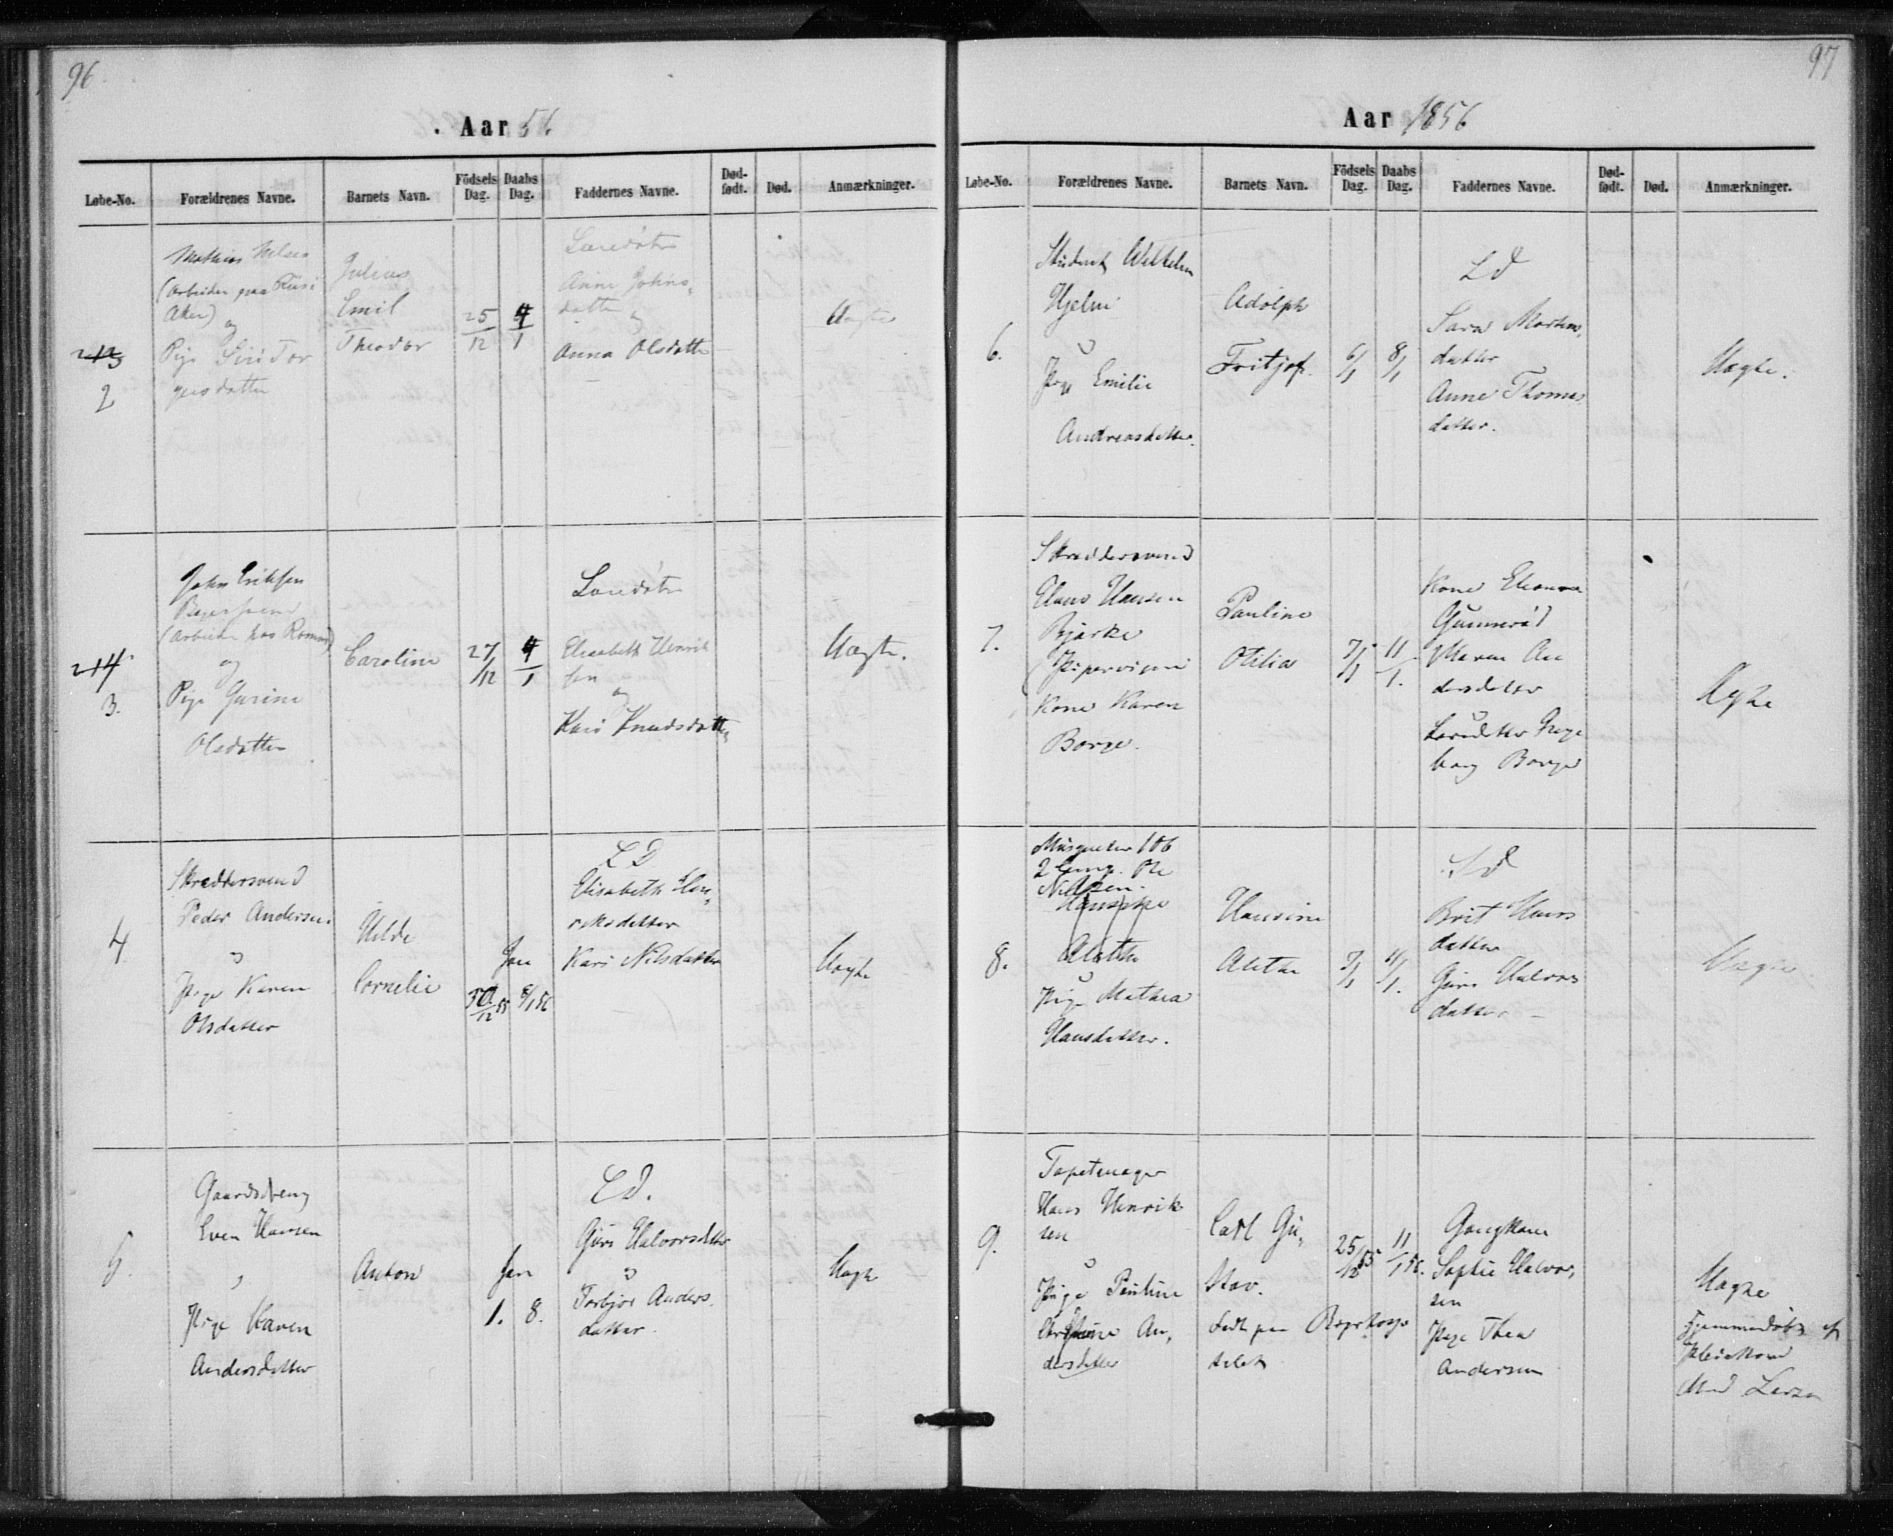 96
Aar 56
Løbe-No.
Forældrenes Navne.
Barnets Navn.
Födsels Dag.
Daabs Dag.
Faddernes Navne.
Død-født.
Død.
Anmærkninger.
2
Mathias Nilsen
(Arbeider paa
Aker)
og
Pige Siri Tor
gersdatter
Julius
Emil
Theodor
25/12
4/1
Anne Johns-
datter og
Anna Olsdatter
Uægte
214
3.
John Eriksen
(Arbeider hos
og
Pige Gurine
Olsdatter
Caroline
27/12
4/1
Elisabeth Henrik
sen
og
Kari Knudsdatter
Uægte.
4
Skreddersvend
Peder Andersen
o
Pige Karen
Olsdatter
Hilda
Cornelie
Jan
8/1 56
L D
Elisabeth Hen-
riksdatter
Kari Nilsdatter
Uægte
5.
Gaardsdreng
Even Hansen
Pige Karen
Andersdatter
Anton
Jan
1. 8.
L D.
Guri Halvorsdatter
o
Torbjør Anders
datter.
Uægte
97
Aar 1856
Løbe-No.
Forældrenes Navne.
Barnets Navn.
Födsels Dag.
Daabs Dag.
Faddernes Navne.
Død-født.
Død.
Anmærkninger.
6.
Student Wilhelm
Hjelm
o
Pige Emilie
Andreasdatter.
Adolph
Fritjof.
6/1
8/1
L D
Sara Martins
datter
Anne Thomas
datter.
Uægte.
7.
Skreddersvend
Hans Hansen
Bjerke
Pipervigen
Kone Karen
Borge.
Pauline
Otilia
7/1
11/1.
Kone Eleonora
Gunnerød
Maren An
dersdatter
Borge
Ægte
8.
Musqueter 106
2 Comp. Ole
Nilsen.
Alethe
o
Pige Mathea
Hansdatter.
Hansine
Alethe
7/1
11/1.
Brit Hans
datter
Guri Halvors
datter
Uægte
9.
Tapetmager
Hans Henrik
sen
o
Pige Pauline
An-
dersdatter
Carl Gu-
stav.
født paa
25/12 55
11/1 56.
Gangkone
Sophie Halvor-
sen
Pige Thea
Andersen
Uægte
Hjemmedøbt af
Md Larsen